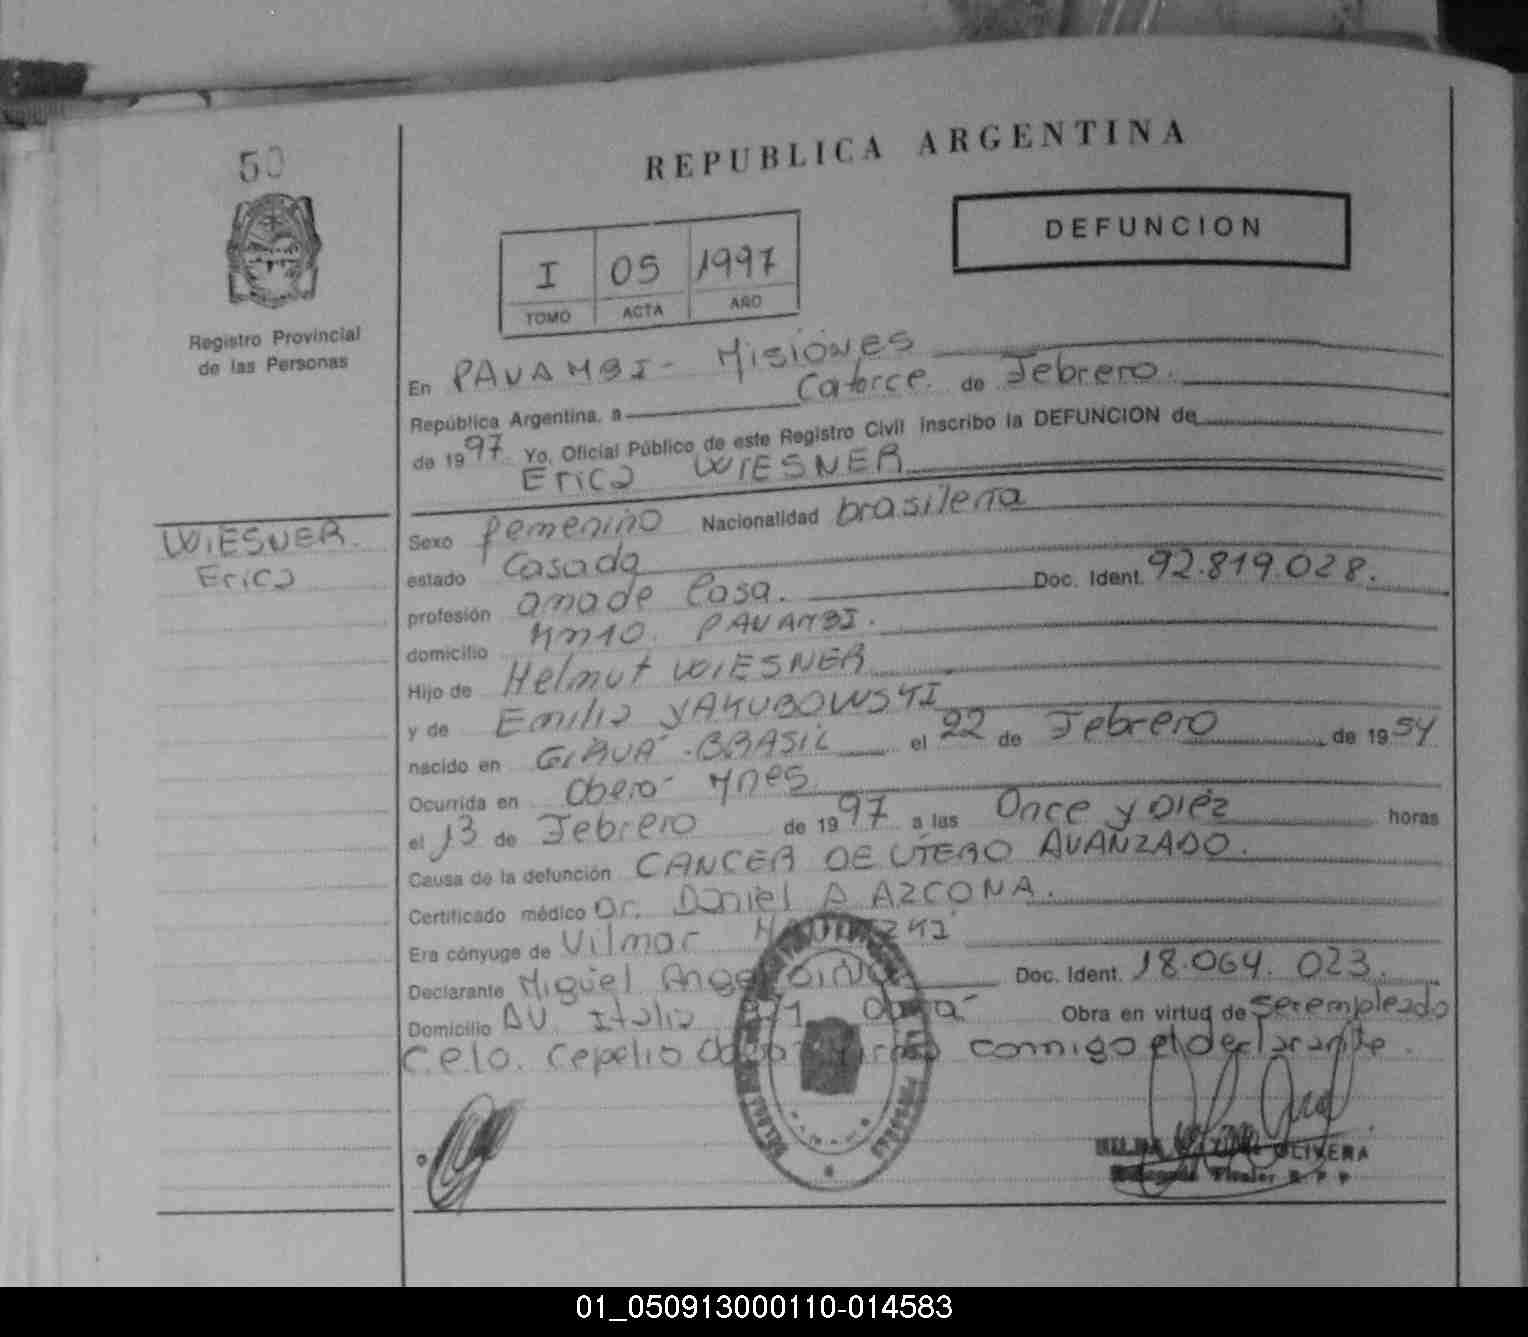 50
REPUBLICA ARGENTINA
DEFUNCION
I 05 1997
TOMO ACTA AÑO
Registro Provincial
de las Personas
En PANAMBI - Misiones
República Argentina, a Catorce de Febrero.
de 1997. Yo, Oficial Público de este Registro Civil inscribo la DEFUNCION de
Erica WIESNER
WIESNER.
Erica
Sexo femenino Nacionalidad brasileña
estado Casada
profesión ama de Casa. Doc. Ident. 92.819.028.
domicilio Km10. PANAMBI.
Hijo de Helmut WIESNER
y de Emilia YAKUBOWSKI
nacido en GIRUA - BRASIL el 22 de Febrero de 1954
Ocurrida en Oberá Mnes
el 13 de Febrero de 1997 a las Once y Diéz horas
Causa de la defunción CANCER DE UTERO AVANZADO.
Certificado médico Dr. Daniel A AZCONA.
Era cónyuge de Vilmar
Declarante Miguel Angel Doc. Ident. 18.064.023.
Domicilio AV. Italia Oberá Obra en virtud de ser empleado
C.e.l.o. Cepelio conmigo el declarante.
OLIVERA
Titular R P P
01_050913000110-014583